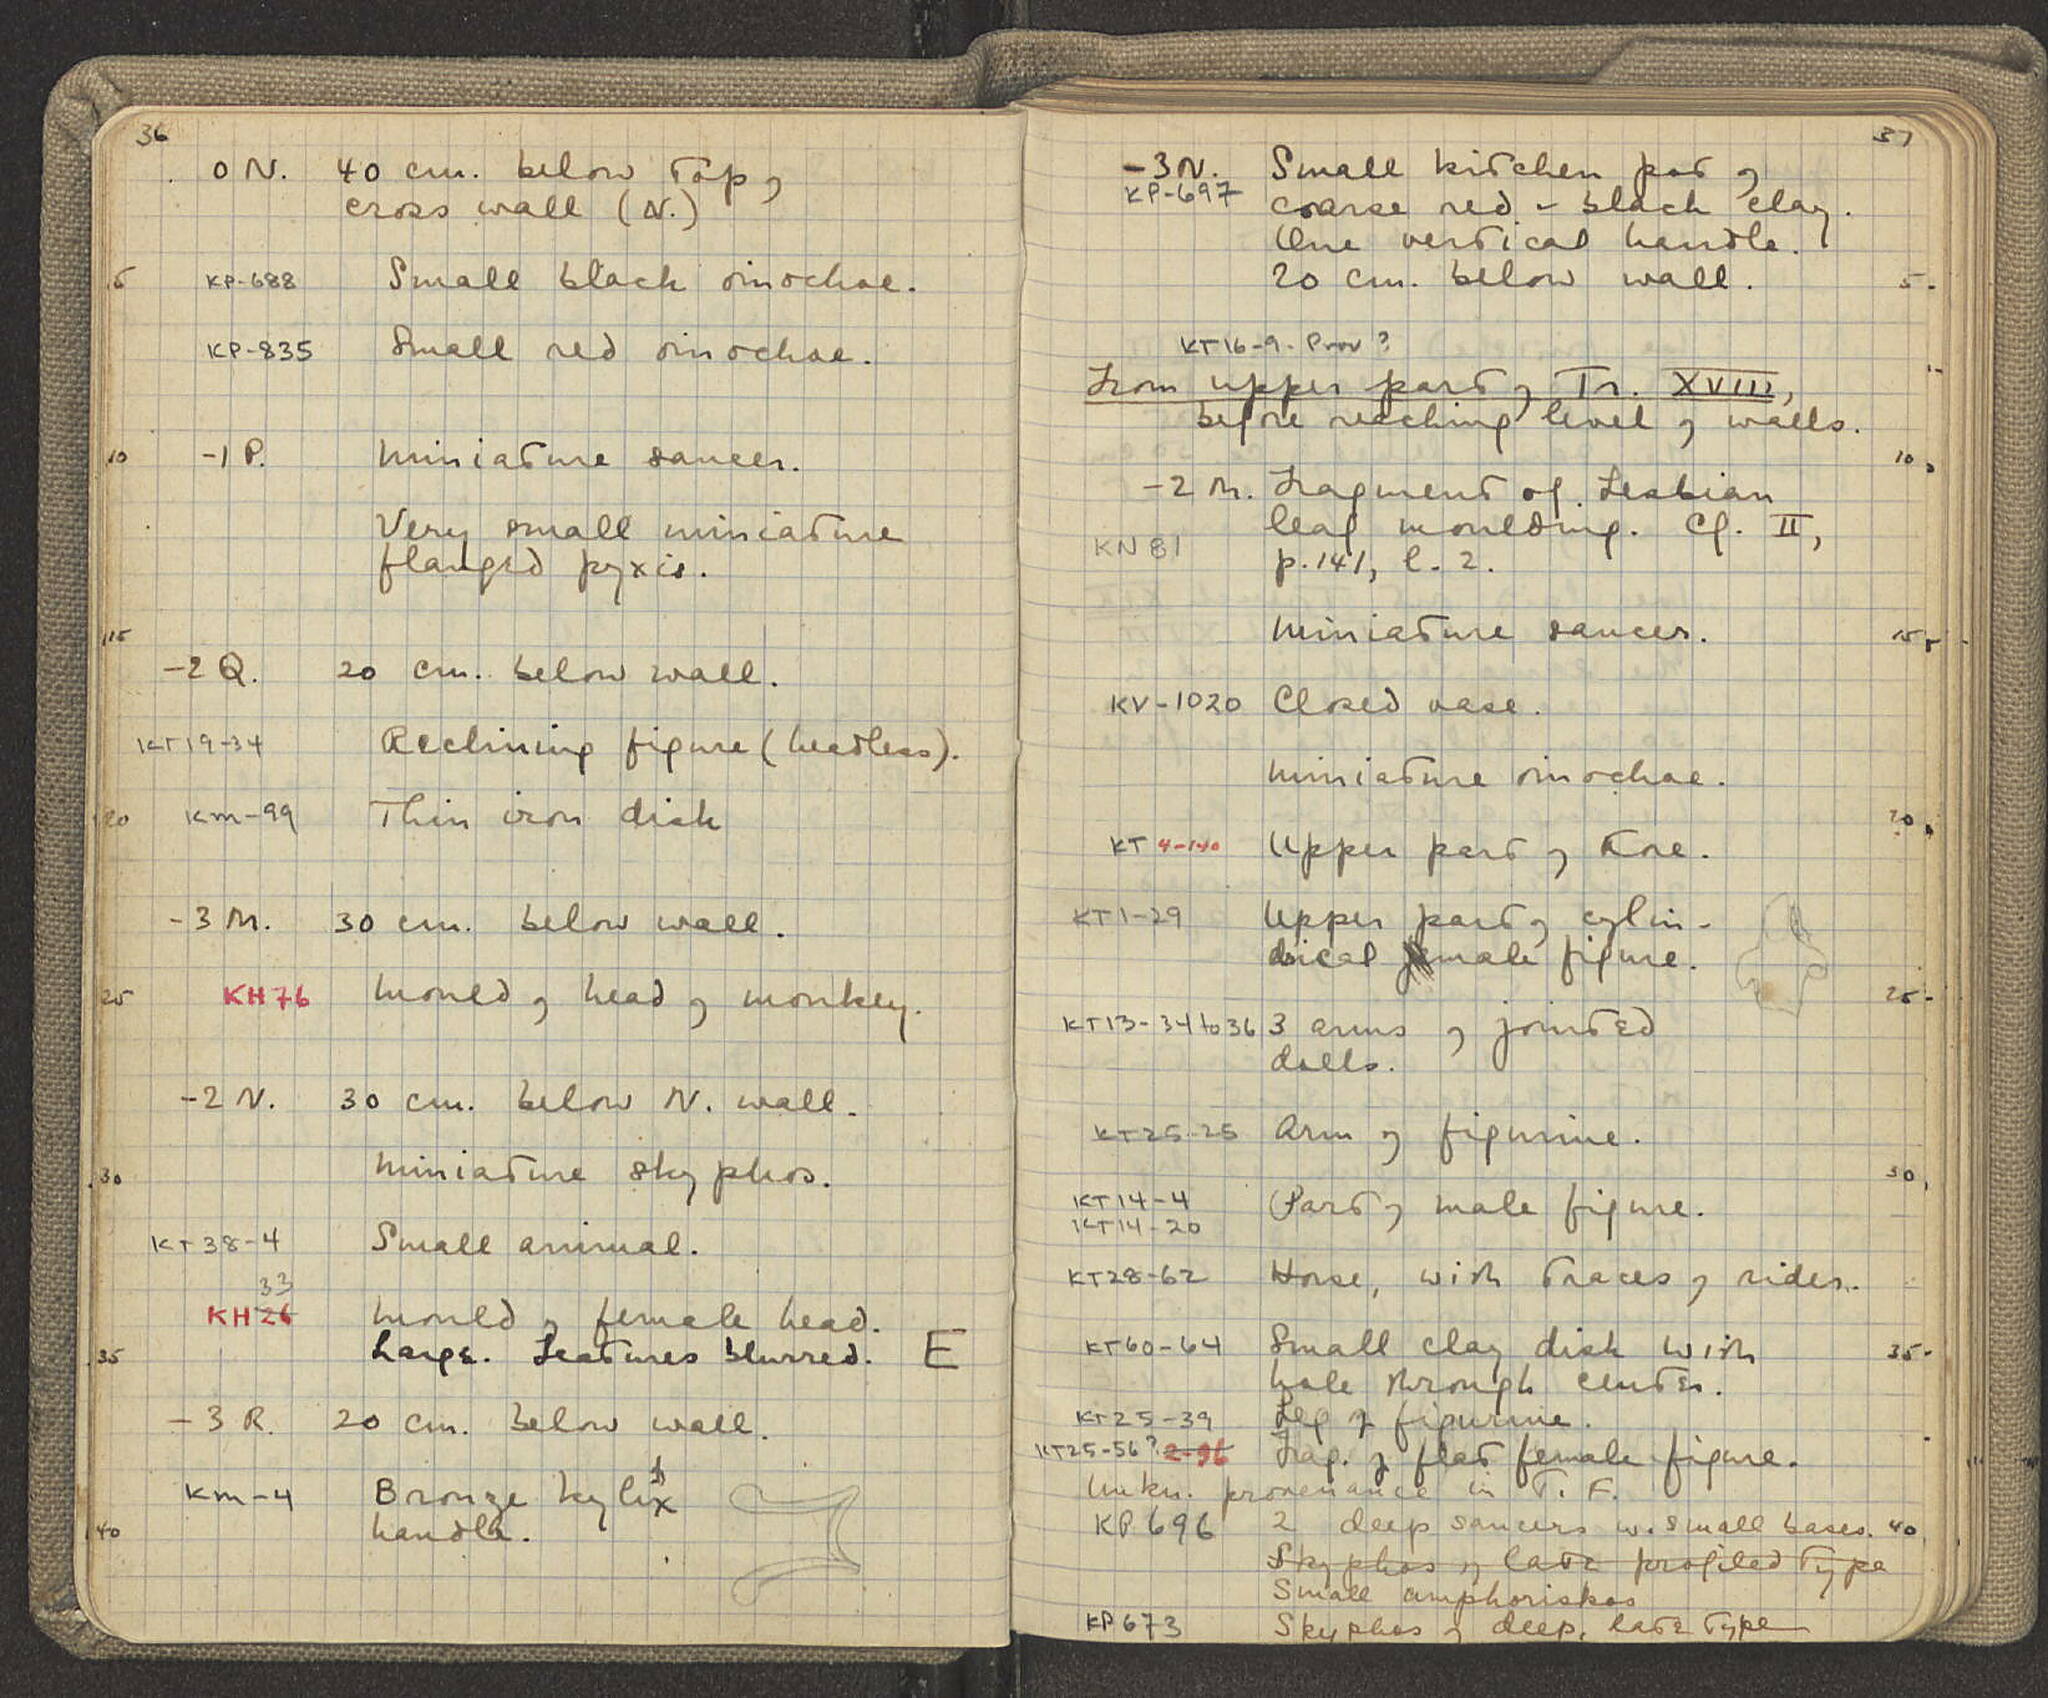 36
0 N. 40 cm. below top of
cross wall (N.)
5 KP-688 Small black oinochoe.
KP-835 Small red oinochoe.
10 -1 P. Miniature saucer.
Very small miniature
flanged pyxis.
15
-2 Q. 20 cm. below wall.
KT19-34 Reclining figure (headless).
20 KM-99 Thin iron disk
-3 M. 30 cm. below wall.
25 KH76 Mould of head of monkey.
-2 N. 30 cm. below N. wall.
30 Miniature skyphos.
KT38-4 Small animal.
33
KH26 Mould of female head.
35 Large. Features blurred. E
-3 R. 20 cm. below wall.
KM-4 Bronze kylix
40 handle.
37
-3 N. Small kitchen pot of
KP-697 coarse red-black clay.
One vertical handle.
20 cm. below wall. 5
KT16-9. Prov?
From upper part of Tr. XVIII,
before reaching level of walls.
10
-2 M. Fragment of Lesbian
leaf moulding. Cf. II,
KN81 p. 141, l. 2.
Miniature saucer. 15
KV-1020 Closed vase.
Miniature oinochoe.
20
KT 4-140 Upper part of Kore.
KT1-29 Upper part of cylin-
drical female figure.
25
KT13-34 to 36 3 arms of jointed
dolls.
KT25-25 Arm of figurine.
30
KT14-4 Part of male figure.
KT14-20
KT28-62 Horse, with traces of rider.
KT60-64 Small clay disk with 35
hole through center.
KT25-39 Leg of figurine.
KT25-56? 2-96 Frag. of flat female figure.
Unkn. provenance in T. F.
KP696 2 deep saucers w. small bases. 40
Skyphos of late profiled type
Small amphoriskos
KP673 Skyphos of deep, late type